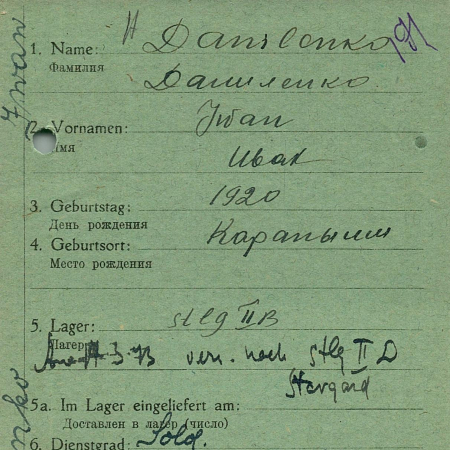 1. Name: Danilenko
Фамилия Даниленко
2. Vornamen: Iwan
Имя Иван
3. Geburtstag: 1920
День рождения
4. Geburtsort:
Место рождения
5. Lager: Stlg II B
Лагерь
vers. nach Stlg II D
Stargard
5a. Im Lager eingeliefert am:
Доставлен в лагер (число)
6. Dienstgrad: Sold.
Iwan
nko